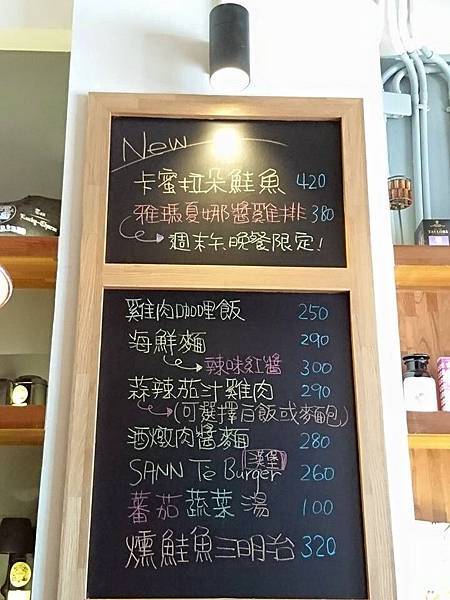 New
卡蜜拉朵鮭魚 420
雅瑪夏娜醬雞排 380
週末午晚餐限定!
雞肉咖哩飯 250
海鮮麵 290
辣味紅醬 300
蒜辣茄汁雞肉 290
(可選擇白飯或麵包)
酒燉肉醬麵 280
漢堡
SANN Te Burger 260
蕃茄蔬菜湯 100
燻鮭魚三明治 320